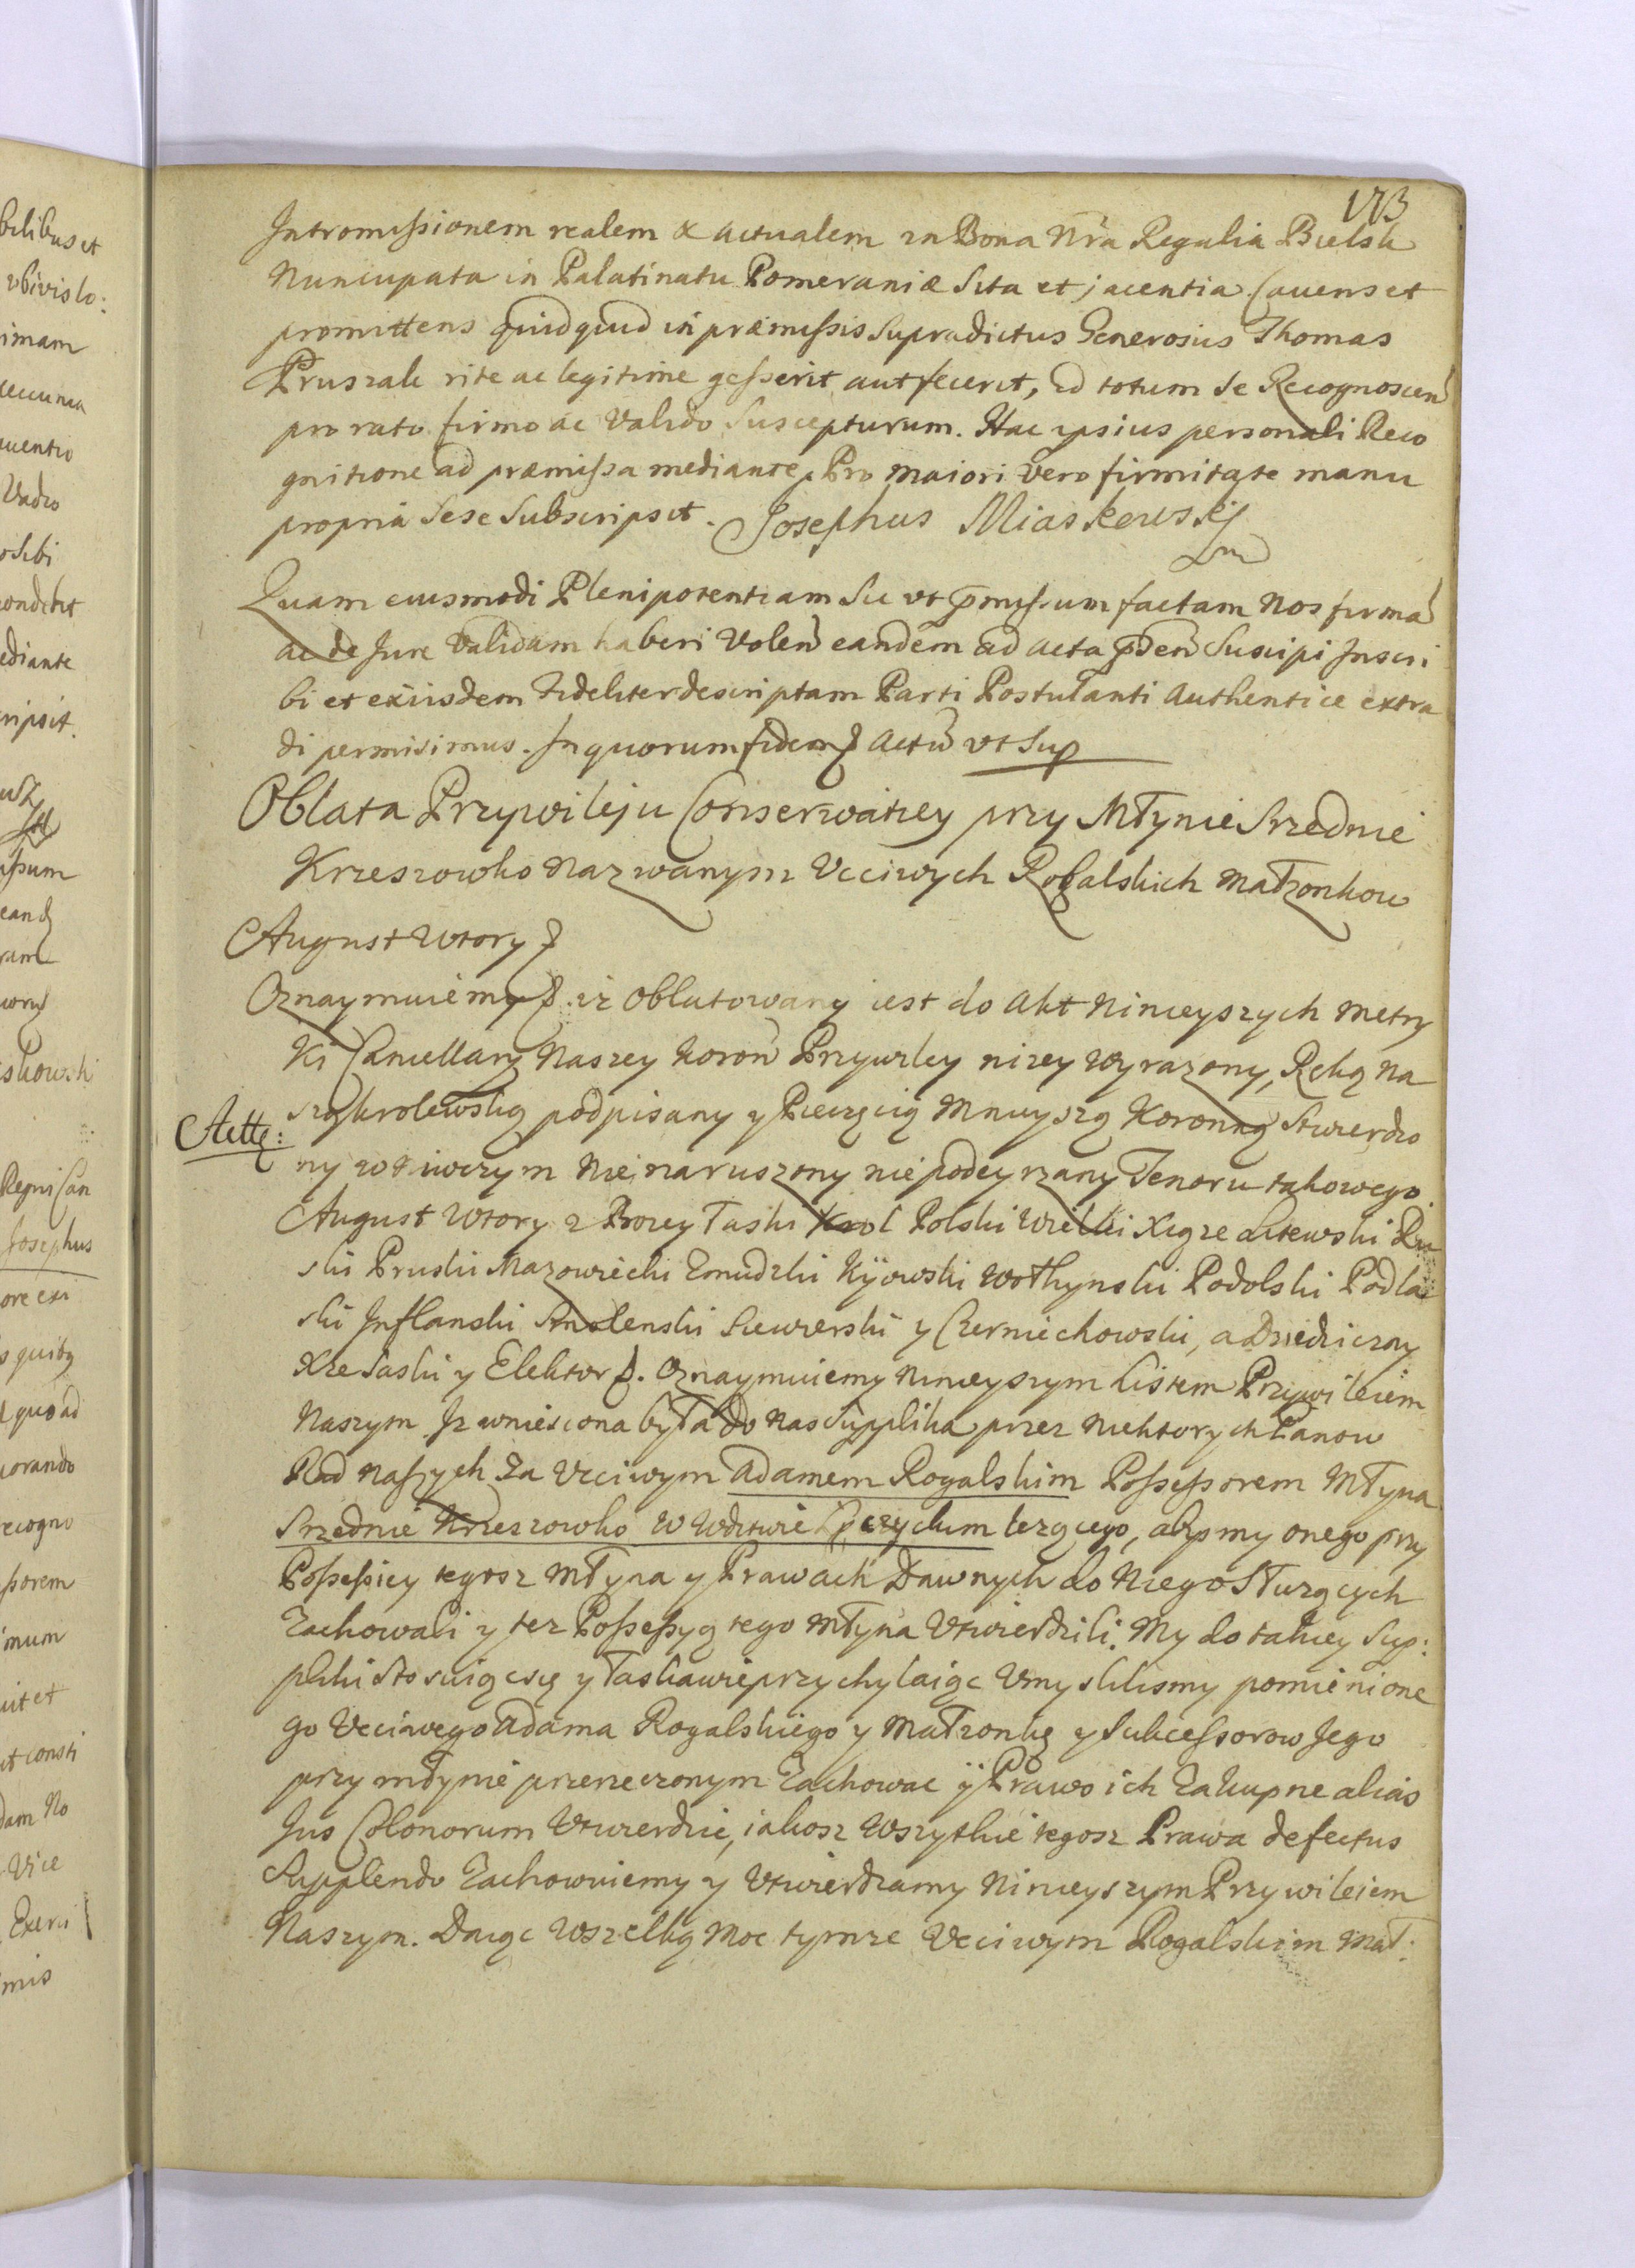 173
Intromissionem realem & actualem in Bona Nr̃a Regalia Bielsk
Nuncupata in Palatinatu Pomeraniæ Sita et jacentia Cavens et
promittens quidquid in præmissis Supradictus Generosus Thomas
Pruszak rite ac legitime gesserit aut fecerit, id totum se Recognoscen
pro rato firmo ac Valido Suscepturum. Hac ipsius personali Reco
gnitione ad præmissa mediante, Pro maiori vero firmitate manu
propria Sese Subscripsit. Josephus Miaskowskj
mp
Quam eiusmodi Plenipotentiam Sic vt pmissum factam Nos firmã
ac de Jure Validam haberi Volen eandem ad acta pден Suscipi Inscri
bi et exiisdem Fideliter descriptam Parti Postulanti Authentice extra
di permisimus. In quorum fidem Actũ vt Sup
Oblata Przywileju Conserwatiey przy Młynie Srzednie
Krzeszowko Nazwanym Vcciwych Rogalskich Małzonkow
August Wtory
Oznaymuiemy iz oblatowany iest do Akt Ninieyszych Metry
Ki Cancellary Naszey Koroñ Przywiley nizey wyrazony, Ręką Na
szą krolewską podpisany y Pieczęcią Mnieyszą Koronną Stwierdzo
Actę:
ny w niwczym Nie naruszony nie podeyrzany Tenoru takowego.
August Wtory z Bozey Łaski Krol Polski Wielki Xiąze Litewski Ru
ski Pruski Mazowiecki Zmudzki Kijowski Wołhynski Podolski Podla
ski Inflanski Smolenski Siewierski y Czerniechowski, a Dziedziczny
Xze Saski y Elektor. Oznaymuiemy Ninieyszym Listem Przywileiem
Naszym. Iz wniesiona była do Nas Supplika przez Niektorych Panow
Rad Naszych Za Vcciwym Adamem Rogalskim Possessorem Młyna
Srzednie Krzeszowko w Wdztwie lezącego, abysmy onego przy
Possessiey tegosz Młyna y Prawach Dawnych do Niego Słuzących
Zachowali y tez Possessyą tego Młyna Vtwierdzili. My do takiey Sup:
pliki Stosuiąc się y Łaskawie przychylaiąc Vmyslilismy pomienione
go Vcciwego Adama Rogalskiego y Małzonkę y Sukcessorow Jego
przy młynie przerzeczonym Zachowac ÿ Prawo ich Zakupne alias
Jus Colonorum Vtwierdzic, iakosz Wszytkie tegosz Prawa defectus
Supplendo Zachowuiemy y Vtwierdzamy Ninieyszym Przywileiem
Naszym. Daiąc Wszelką Moc tymze Vcciwym Rogalskim Mał: